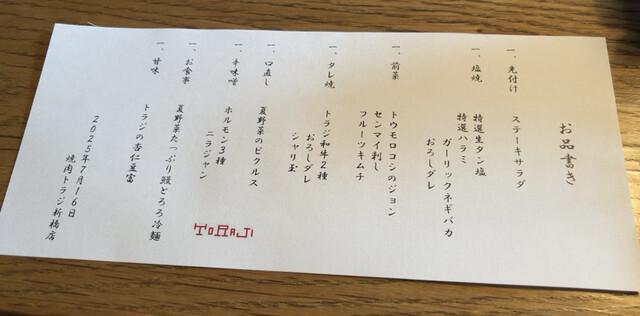 お品書き
一、先付け
ステーキサラダ
一、塩焼
特選生タン塩
特選ハラミ
ガーリックネギバカ
おろしダレ
一、前菜
トウモロコシのジョン
センマイ刺し
フルーツキムチ
一、タレ焼
トラジ和牛2種
おろしダレ
シャリ玉
一、口直し
夏野菜のピクルス
一、辛味噌
ホルモン3種
ニラジャン
一、お食事
夏野菜たっぷり鰻とろろ冷麺
一、甘味
トラジの杏仁豆富
2025年7月16日
焼肉トラジ新橋店
TORAJI